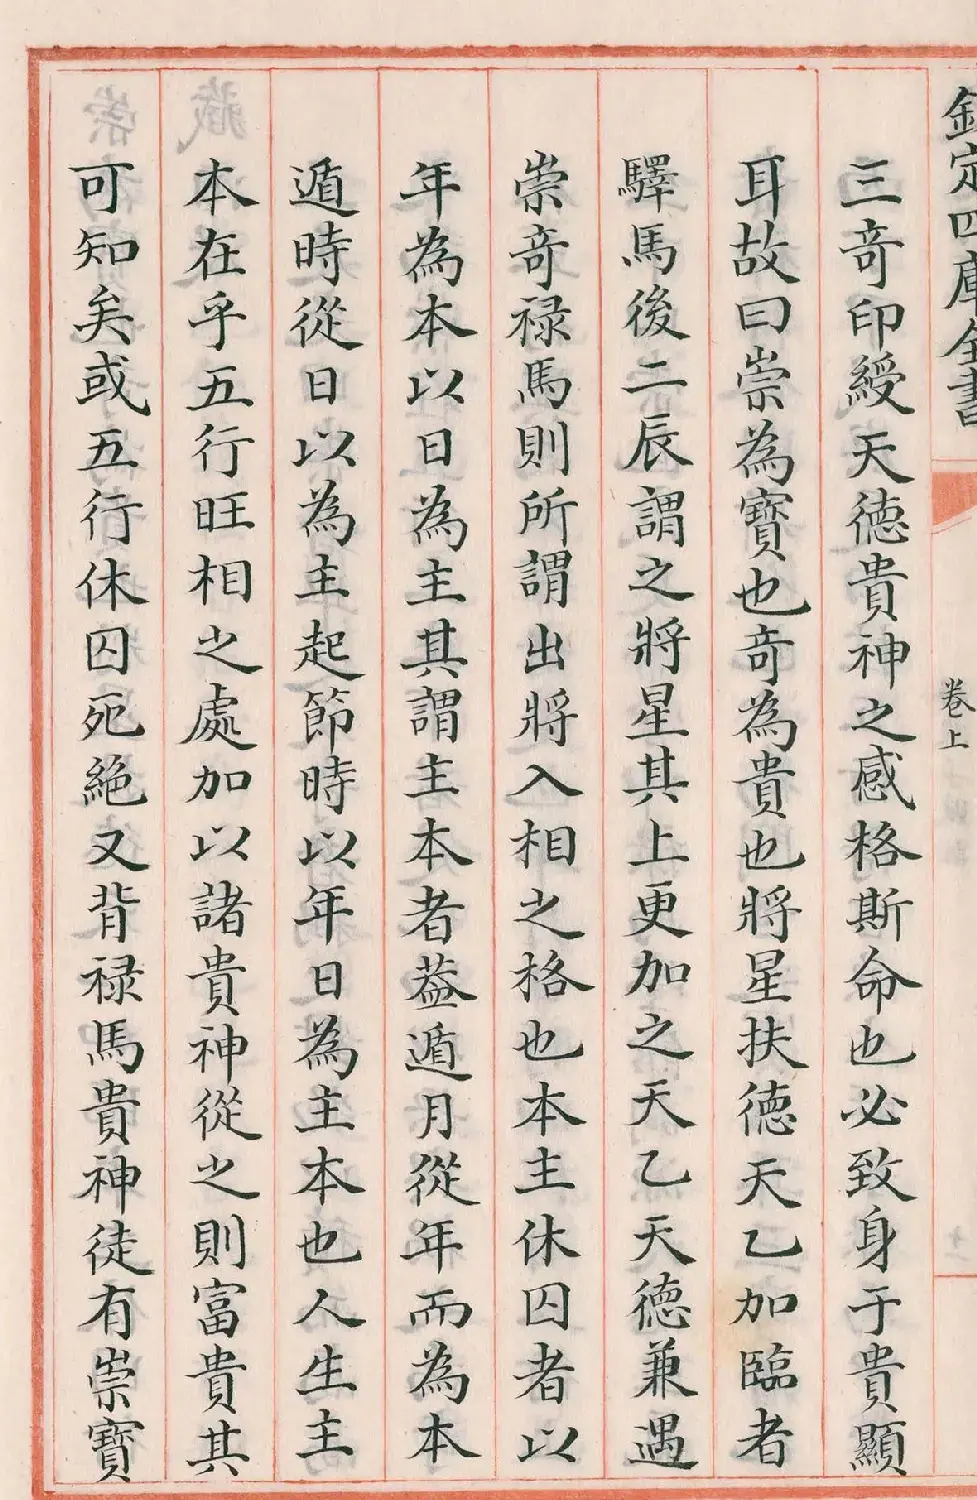 欽定四庫全書
卷上
三奇印綬天德貴神之感格斯命也必致身于貴顯
耳故曰崇為寳也奇為貴也將星扶德天乙加臨者
驛馬後二辰謂之將星其上更加之天乙天德兼遇
崇奇禄馬則所謂出將入相之格也本主休囚者以
年為本以日為主其謂主本者葢遁月從年而為本
遁時從日以為主起節時以年日為主本也人生主
本在乎五行旺相之處加以諸貴神從之則富貴其
可知矣或五行休囚死絶又背禄馬貴神徒有崇寳